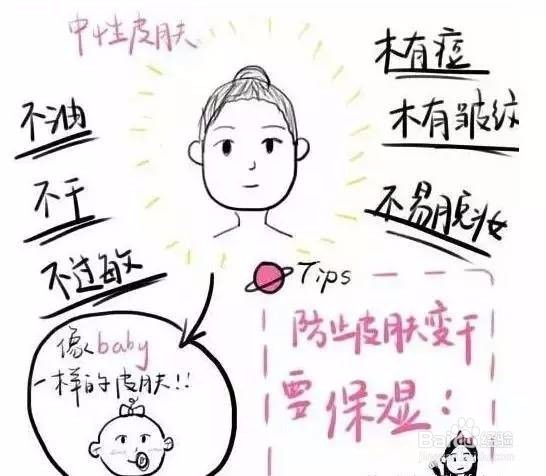 中性皮肤
不油
不干
不过敏
木有痘
木有皱纹
不易脱妆
像baby
一样的皮肤!!
Tips
防止皮肤变干
要保湿：
Baidu经验